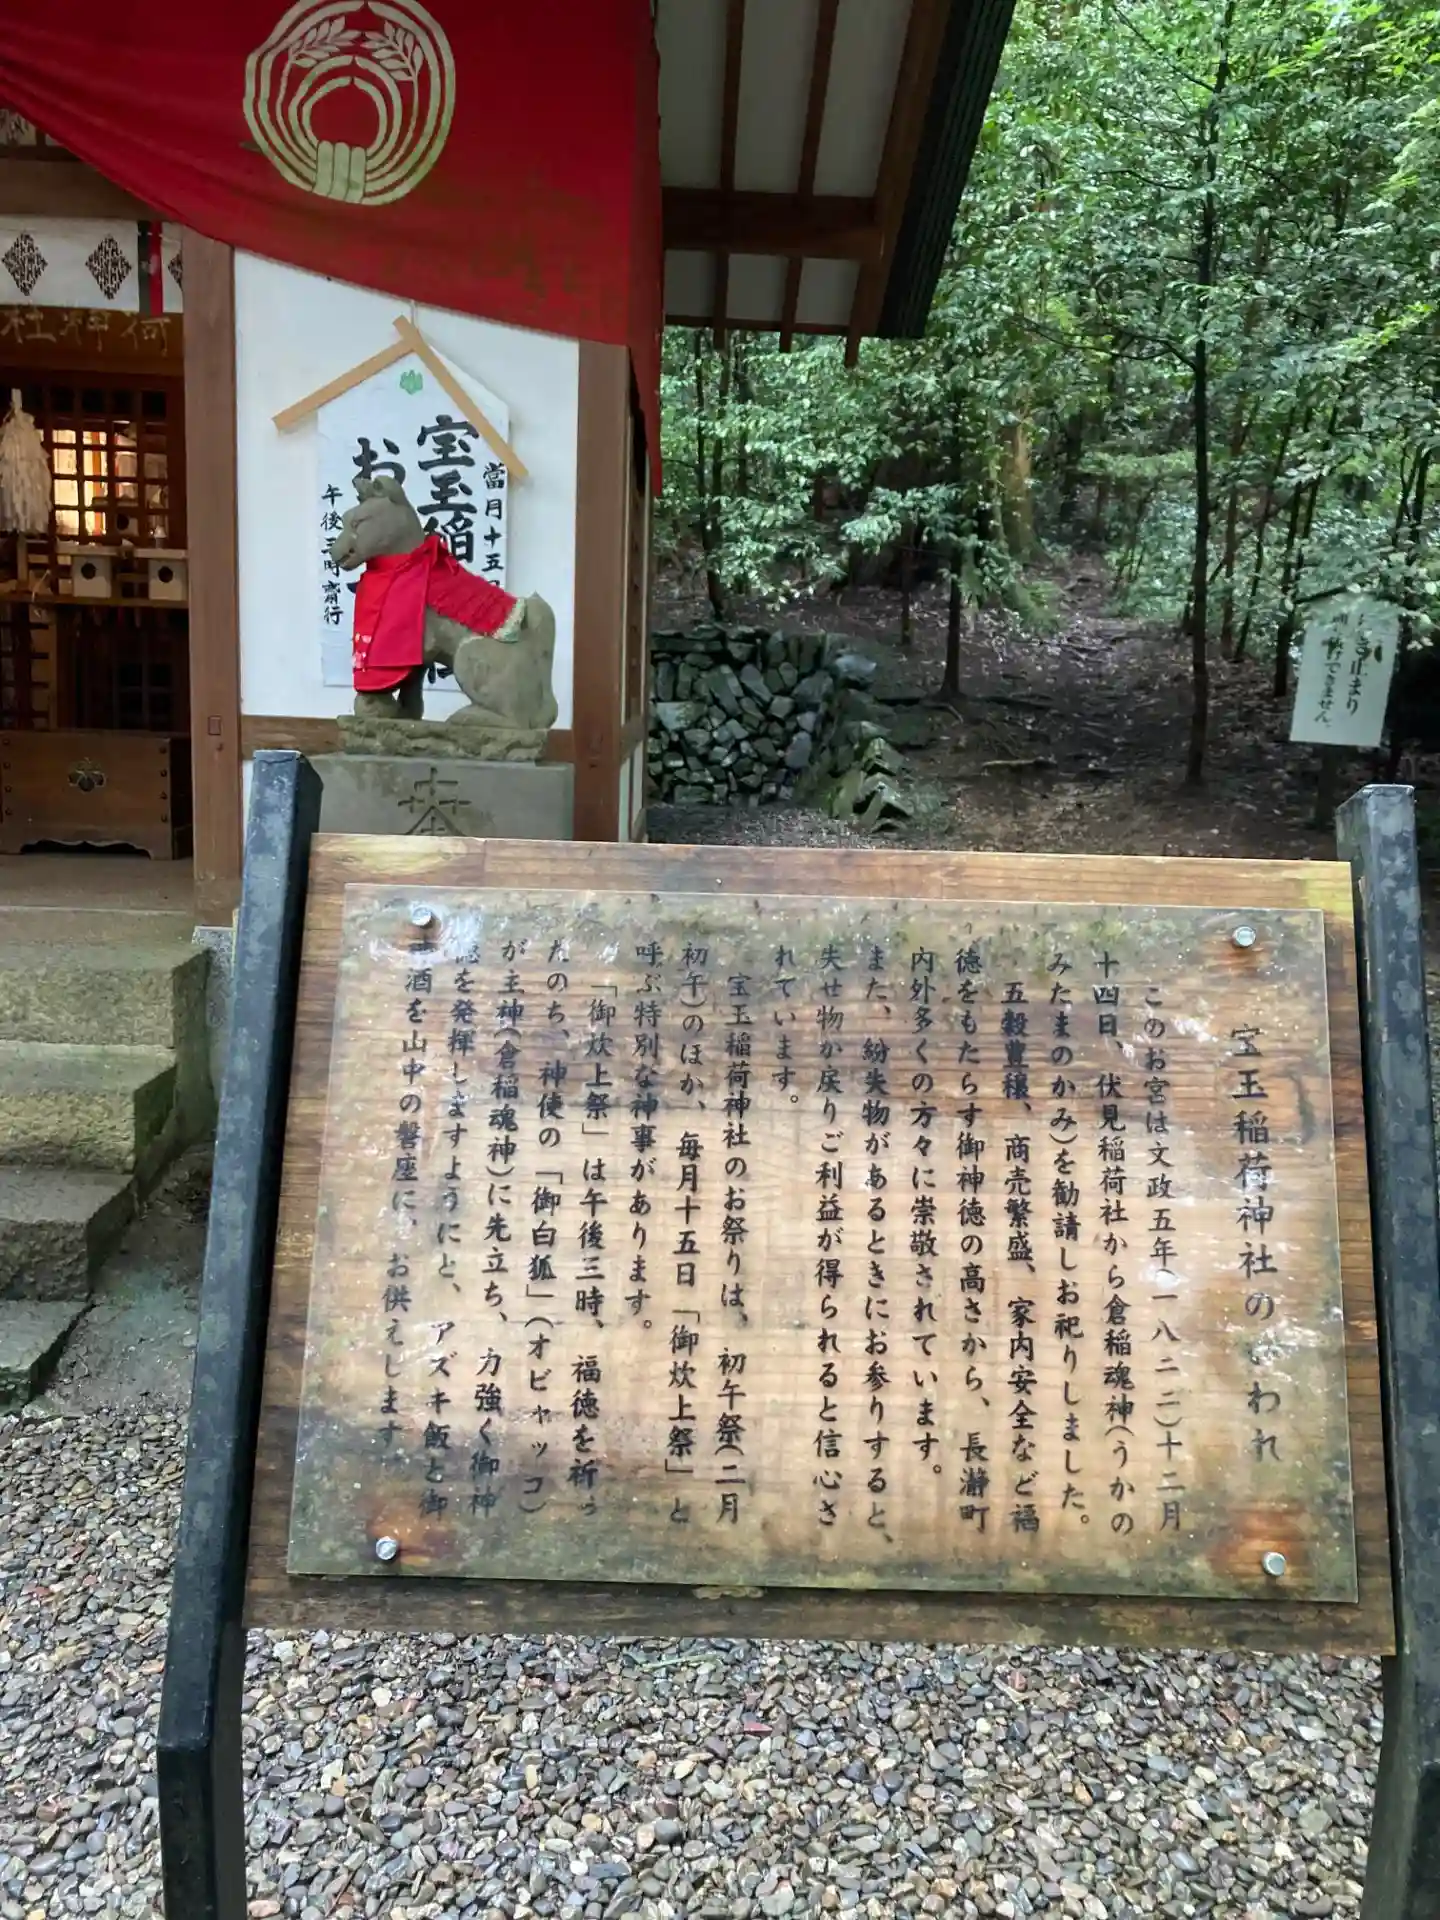 宝玉稲荷神社のいわれ
このお宮は文政五年(一八二二)十二月
十四日、伏見稲荷社から倉稲魂神(うかの
みたまのかみ)を勧請しお祀りしました。
五穀豊穣、商売繁盛、家内安全など福
徳をもたらす御神徳の高さから、長瀞町
内外多くの方々に崇敬されています。
また、紛失物があるときにお参りすると、
失せ物が戻りご利益が得られると信心さ
れています。
宝玉稲荷神社のお祭りは、初午祭(二月
初午)のほか、毎月十五日「御炊上祭」と
呼ぶ特別な神事があります。
「御炊上祭」は午後三時、福徳を祈っ
たのち、神使の「御白狐」(オビャッコ)
が主神(倉稲魂神)に先立ち、力強く御神
徳を発揮しますようにと、アズキ飯と御
神酒を山中の磐座に、お供えします
當月十五
宝玉稲
お
午後三時齋行
荷神社
止まり
できません。